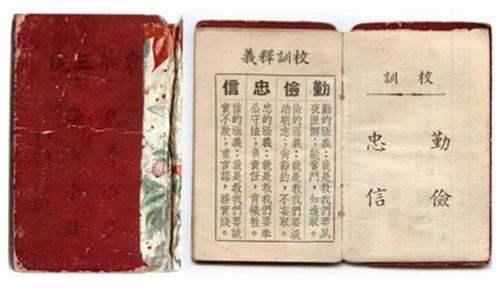 校訓
勤儉
忠信
校訓釋義
勤
勤的涵義：就是教我們要夙
夜匪懈；能奮鬥，知進取。
儉
儉的涵義：就是教我們要淡
泊明志；尚節約，不妄取。
忠
忠的涵義：就是教我們要奉
公守法；負責任，肯犧牲。
信
信的涵義：就是教我們要誠
實不欺；重言諾，務實踐。